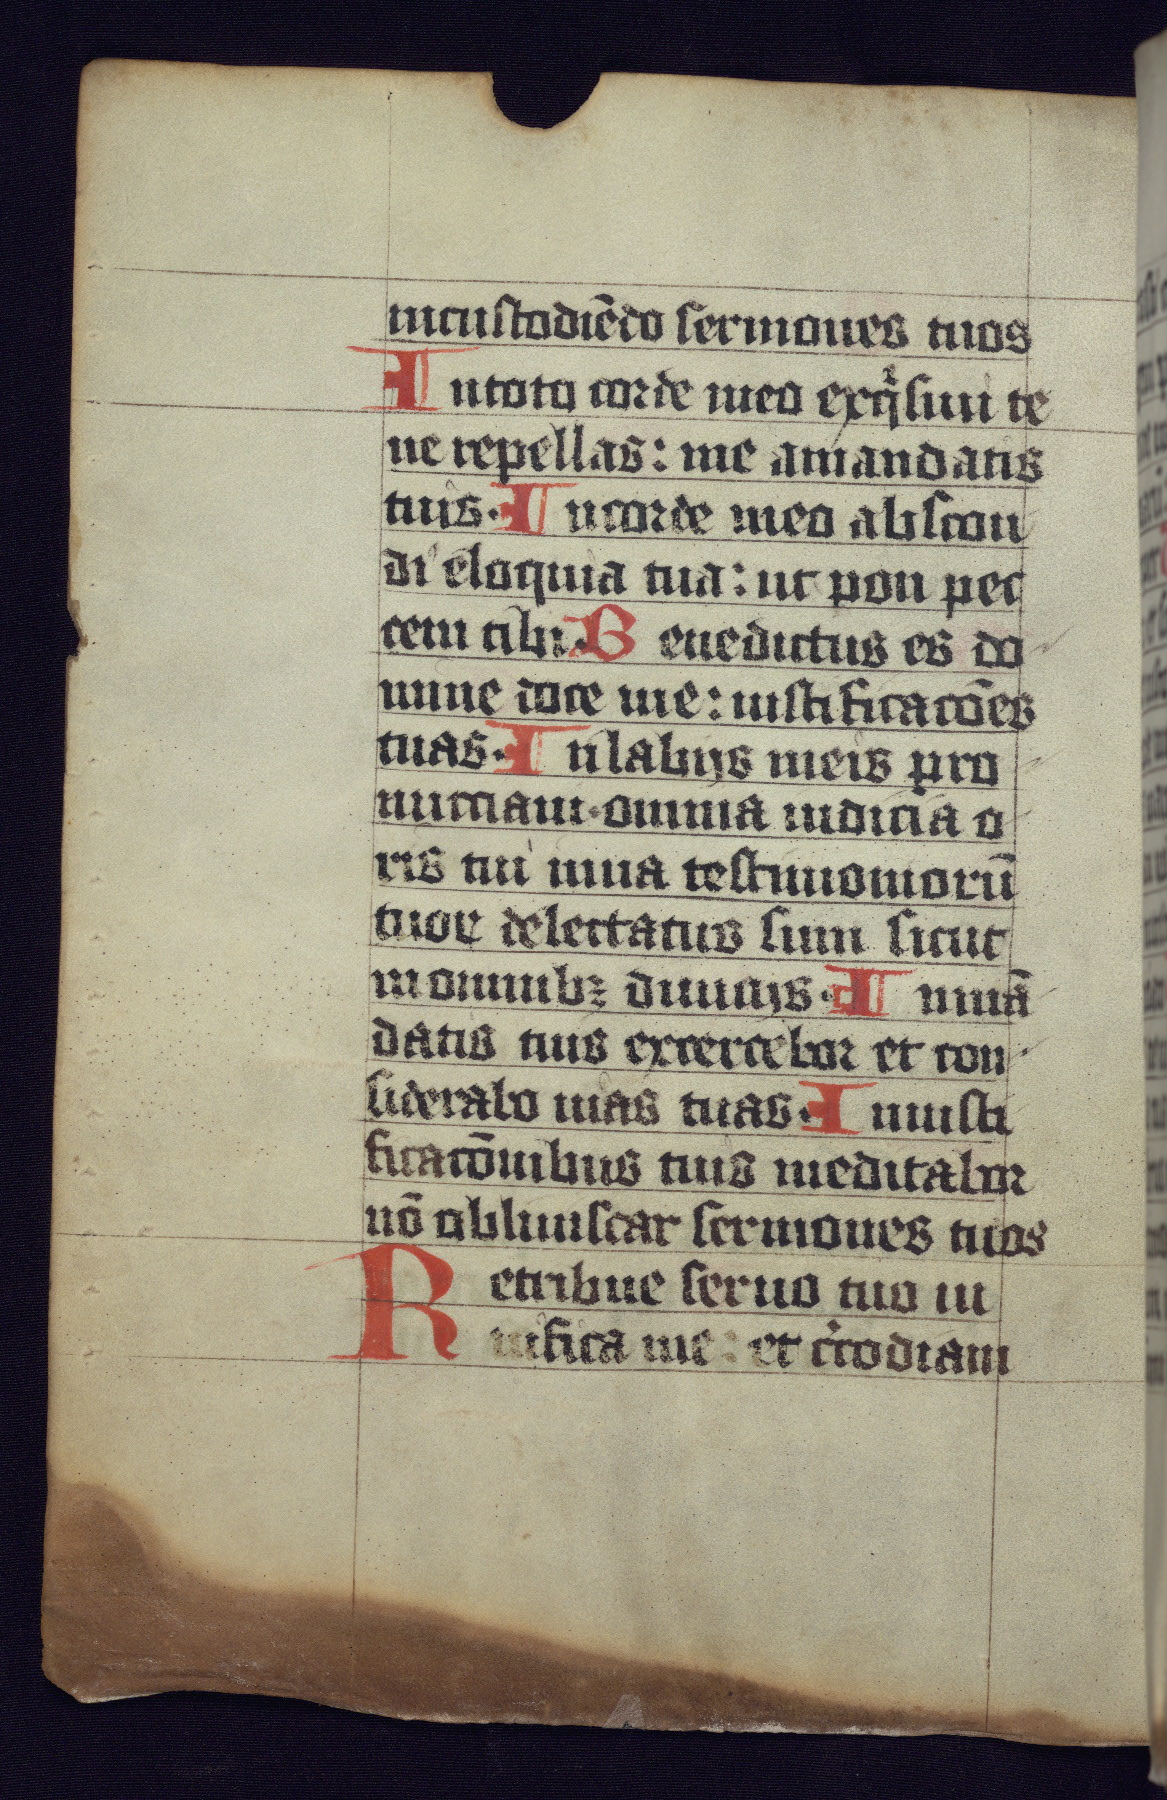 incustodiēdo sermones tuos
In toto corde meo exqͥsiui te
ne repellas: me amandatis
tuis. In corde meo abscon
di eloquia tua: ut non pec
cem tibi. Benedictus es do
mine doce me: iustificacōes
tuas. In labijs meis pro
nuncciam. omnia iudicia o
ris tui inuia testimoniorū
tuoꝝ delectatus sum sicut
in omnibꝫ diuicijs. In mā
datis tuis excercebor et con
siderabo uias tuas. In iusti
ficacōnibus tuis meditabor
nō obliuiscar sermones tuos
Retribue seruo tuo ui
uifica me: et c̾todiam